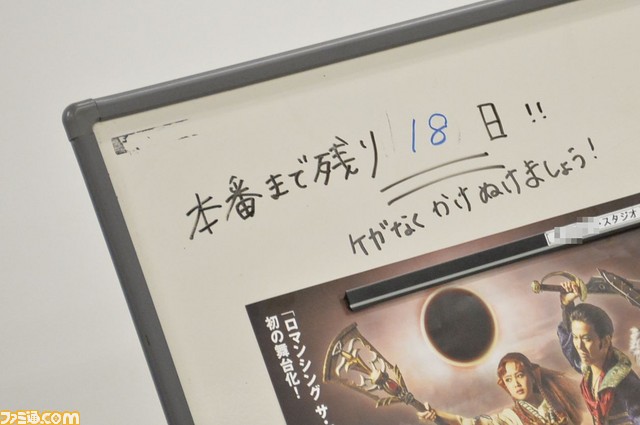 本番まで残り 18 日!!
ケガなく かけぬけましょう!
・スタジオ
「ロマンシング サ・
初の舞台化!
ファミ通.com